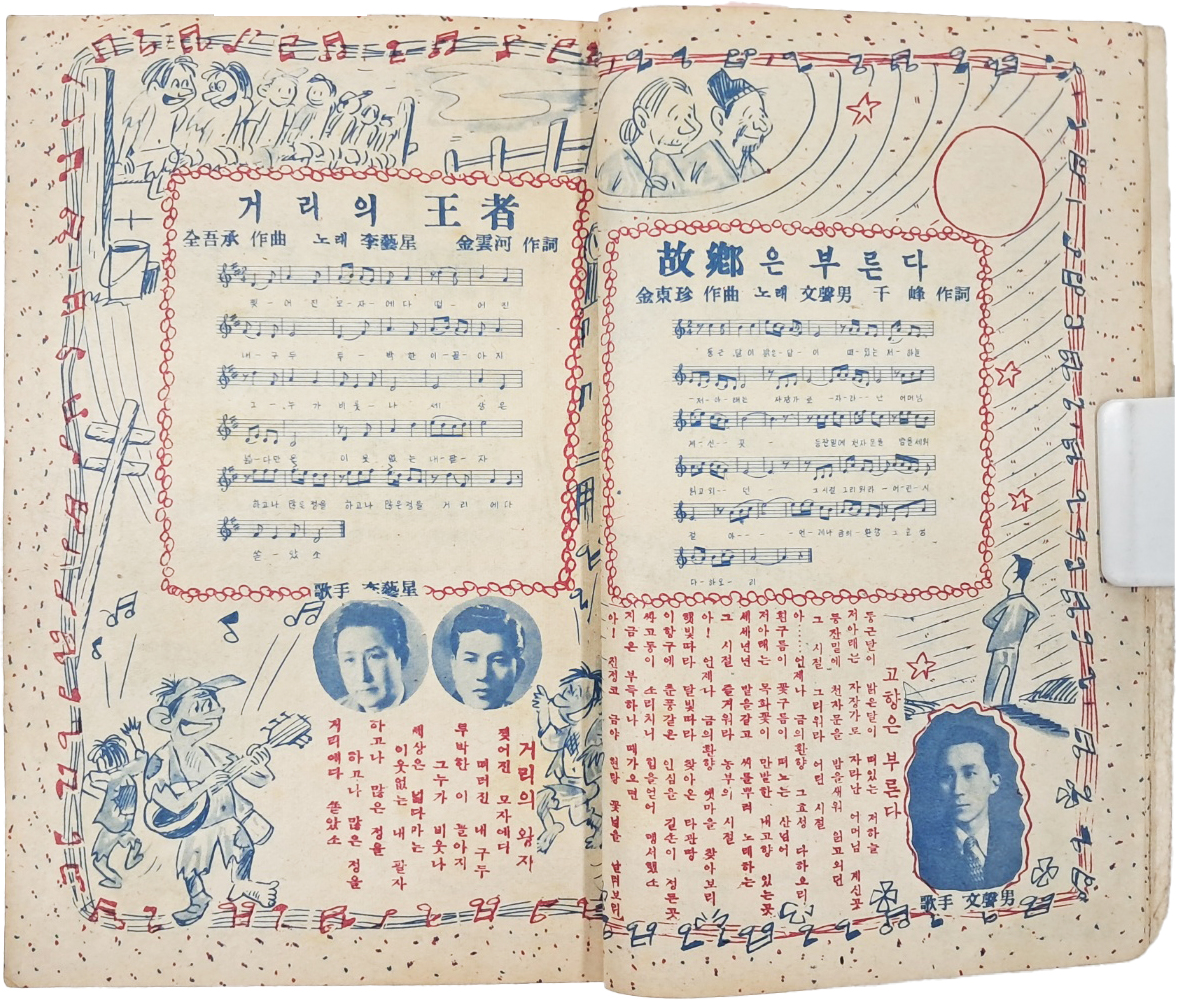 거리의 王者
全吾承 作曲 노래 李藝星 金雲河 作詞
찢-어진 모자-에다 떨-어진
내-구두 투-박한이-꼴-아지
그-누가 비웃-나 세상은
넓-다만은 이웃없는 내-팔-자
하고나 많은정을 하고나 많은정을 거리에다
쏟-았소
歌手 李藝星
거리의 왕자
찢어진 모자에다
떠러진 내구두
투박한 이 놀아지
그누가 비웃나
세상은 넓다라는
이웃없는 내 팔자
하고나 많은 정을
하고나 많은 정을
거리에다 쏟았소
故鄕은 부른다
金東珍 作曲 노래 文聲男 千峰 作詞
둥근달이 밝은-달-이 떠-있는저-하늘
-저-아-래는 자장가로-자-라-난 어머님
계-신--곳- 등잔밑에 천자문을 밤을새워
읽고외--던- 그시절그리워라-어-린-시
절 아---언-제나금의-환향 그효성
다-하오-리
고향은 부른다
둥근달이 밝은달이 떠있는 저하늘
저아래는 자장가로 자라난 어머님 계신곳
등잔밑에 천자문을 밤을새워 읽고외던
그 시절 그리워라 어린 시절
아……언제나 금의환향 그효성 다하오리
흰구름이 꽃구름이 떠노는 산넘어
저아래는 목화꽃이 만발한 내고향 있는곳
세세년년 밭을갈고 씨를뿌려 노래하는
그 시절 즐겨워라 농부의 시절
아! 언제나 금의환향 옛마을 찾아보리
햇빛따라 달빛따라 찾아온 타관땅
이항구에 훈풍같은 인심을 길손이 정든곳
싸고동이 소리치니 힘을얻어 맹서했소
지금은 부득하나 때가오면
아! 진정코 금야 원앙 꽃님을 날려보리
歌手 文聲男